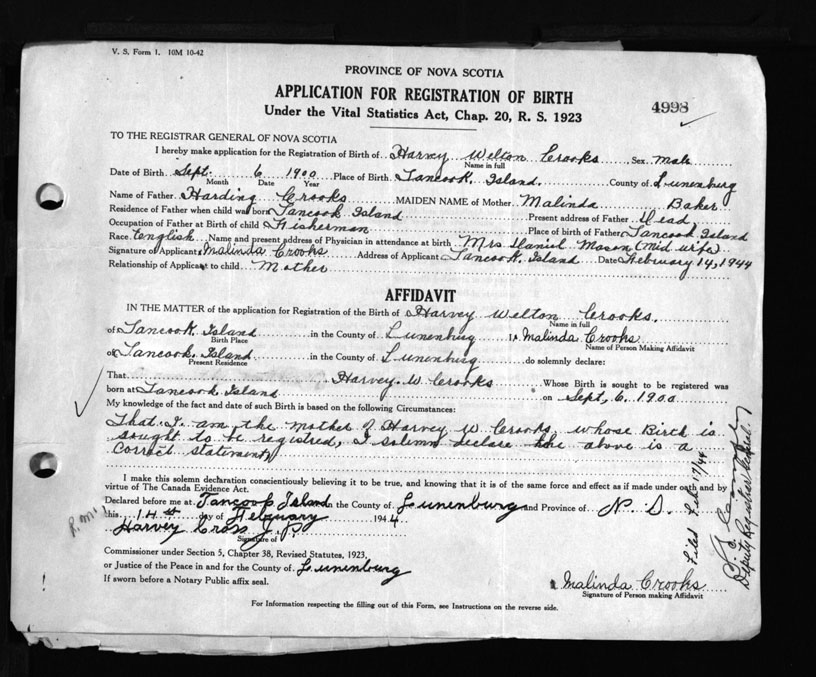 V. S. Form 1. 10M 10-42
PROVINCE OF NOVA SCOTIA
APPLICATION FOR REGISTRATION OF BIRTH
4998
Under the Vital Statistics Act, Chap. 20, R. S. 1923
TO THE REGISTRAR GENERAL OF NOVA SCOTIA
I hereby make application for the Registration of Birth of Harvey Welton Crooks Sex Male
Name in full
Date of Birth Sept. 6 1900 Place of Birth Tancook Island. County of Lunenburg
Month Date Year
Name of Father Harding Crooks MAIDEN NAME of Mother Malinda Baker
Residence of Father when child was born Tancook Island Present address of Father Dead
Occupation of Father at Birth of child Fisherman Place of birth of Father Tancook Island
Race English Name and present address of Physician in attendance at birth Mrs Daniel Mason (Mid wife)
Signature of Applicant Malinda Crooks Address of Applicant Tancook Island Date February 14, 1944
Relationship of Applicant to child Mother
AFFIDAVIT
IN THE MATTER of the application for Registration of the Birth of Harvey Welton Crooks.
Name in full
of Tancook Island in the County of Lunenburg I, Malinda Crooks
Birth Place Name of Person Making Affidavit
of Tancook Island in the County of Lunenburg do solemnly declare:
Present Residence
That Harvey W Crooks Whose Birth is sought to be registered was
born at Tancook Island on Sept, 6, 1900
My knowledge of the fact and date of such Birth is based on the following Circumstances:
That I am the mother of Harvey W Crooks, whose Birth is
sought to be registered, I solemn declare the above is a
correct statement
I make this solemn declaration conscientiously believing it to be true, and knowing that it is of the same force and effect as if made under oath and by
virtue of The Canada Evidence Act.
Declared before me at Tancook Island in the County of Lunenburg and Province of N. S.
this 14th day of February 1944
Harvey Cross J. P.
Signature of
Commissioner under Section 5, Chapter 38, Revised Statutes, 1923,
or Justice of the Peace in and for the County of Lunenburg
If sworn before a Notary Public affix seal.
Malinda Crooks
Signature of Person making Affidavit
For Information respecting the filling out of this Form, see Instructions on the reverse side.
Filed Feb 17/44
Deputy Registrar General